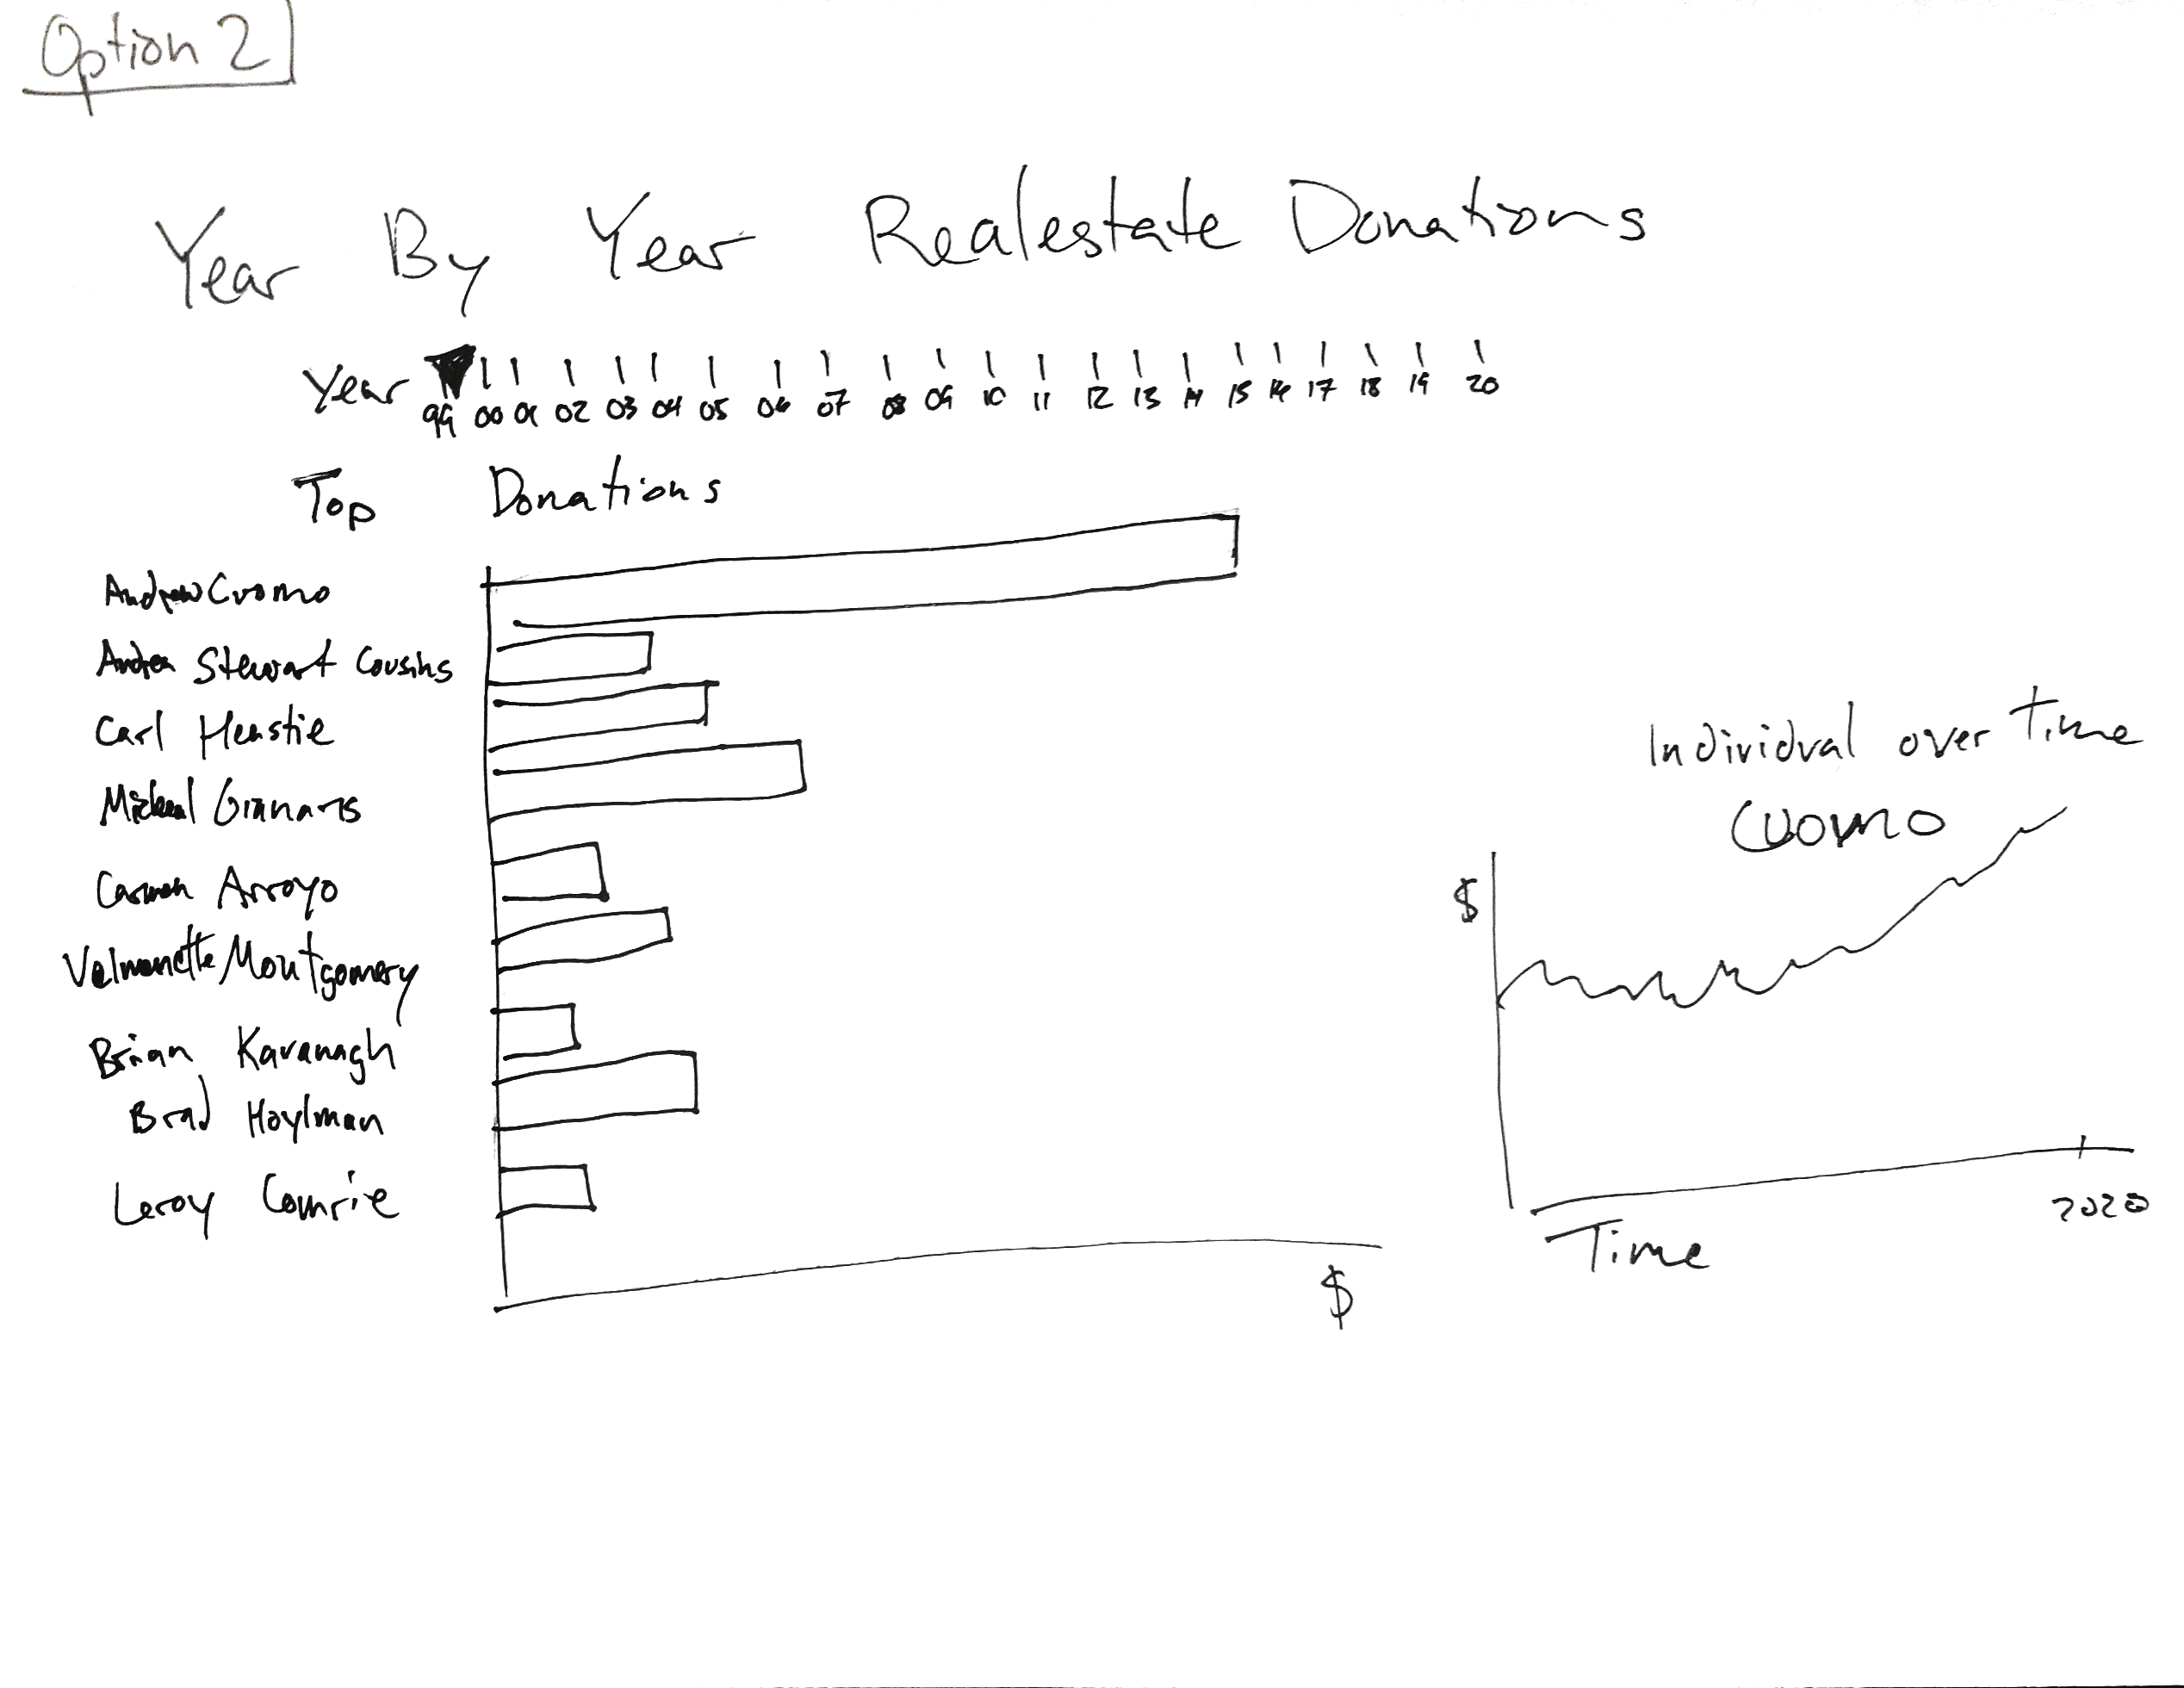 Option 2
Year By Year Realestate Donations
Year 99 00 01 02 03 04 05 06 07 08 09 10 11 12 13 14 15 16 17 18 19 20
Top Donations
Andrew Cuomo
Andrea Stewart Cousins
Carl Heastie
Micheal Gianaris
Carmen Arroyo
Velmanette Montgomery
Brian Kavanagh
Brad Hoylman
Leroy Comrie
$
Individual over Time
Cuomo
$
2020
Time